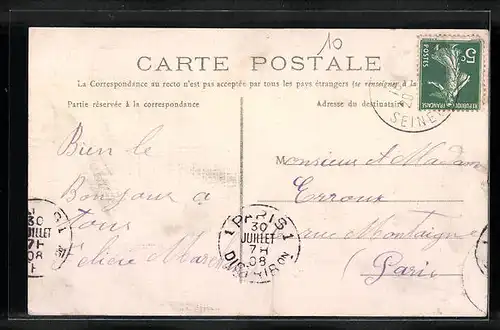 10
CARTE POSTALE
La Correspondance au recto n'est pas acceptée par tous les pays étrangers (se renseigner à la
Partie réservée à la correspondance
Adresse du destinataire
5c
POSTES
REPUBLIQUE FRANÇAISE
SEINE
Bien le
Bonjour à
tous
Monsieur et Madam
rue Montaigne
(Paris
PARIS 1
30
JUILLET
7H
08
DISTRIBON
30
JUILLET
7H
08